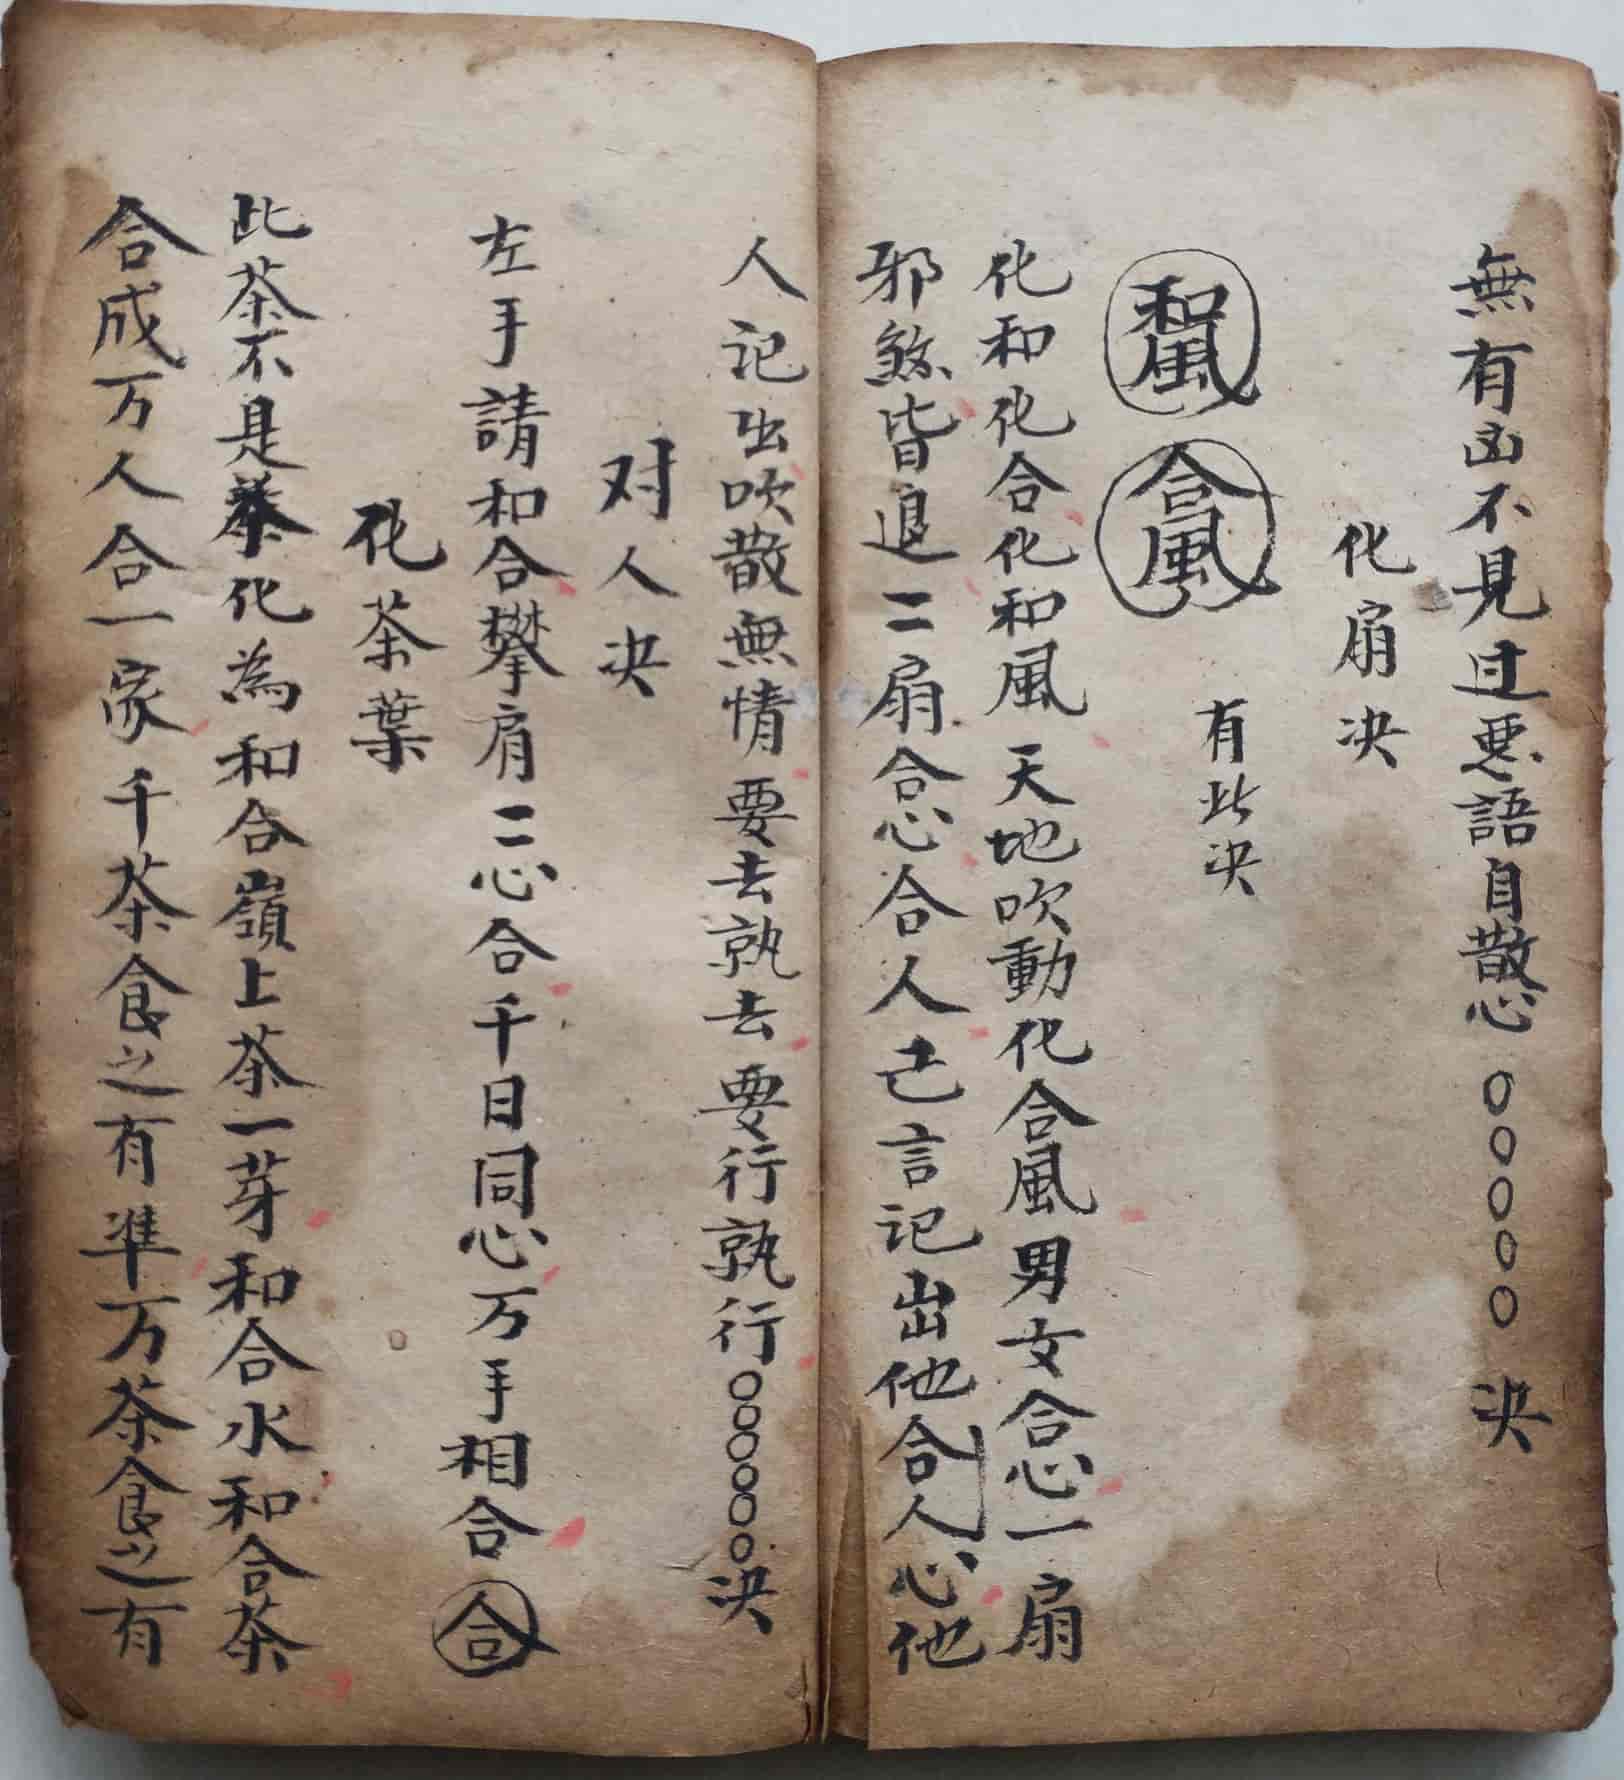 無有凶不見过悪語自散心〇〇〇〇〇决
化扇决
和風 合風 有此决
化和化合化和風天地吹動化合風男女合心一扇
邪煞皆退二扇合心合人己言记出他合人心他
人记出吹散無情要去孰去要行孰行〇〇〇〇〇〇决
对人决
左手請和合攀肩二心合千日同心万手相合合
化茶葉
此茶不是茶化為和合嶺上茶一芽和合水和合茶
合成万人合一家千茶食之有準万茶食之有